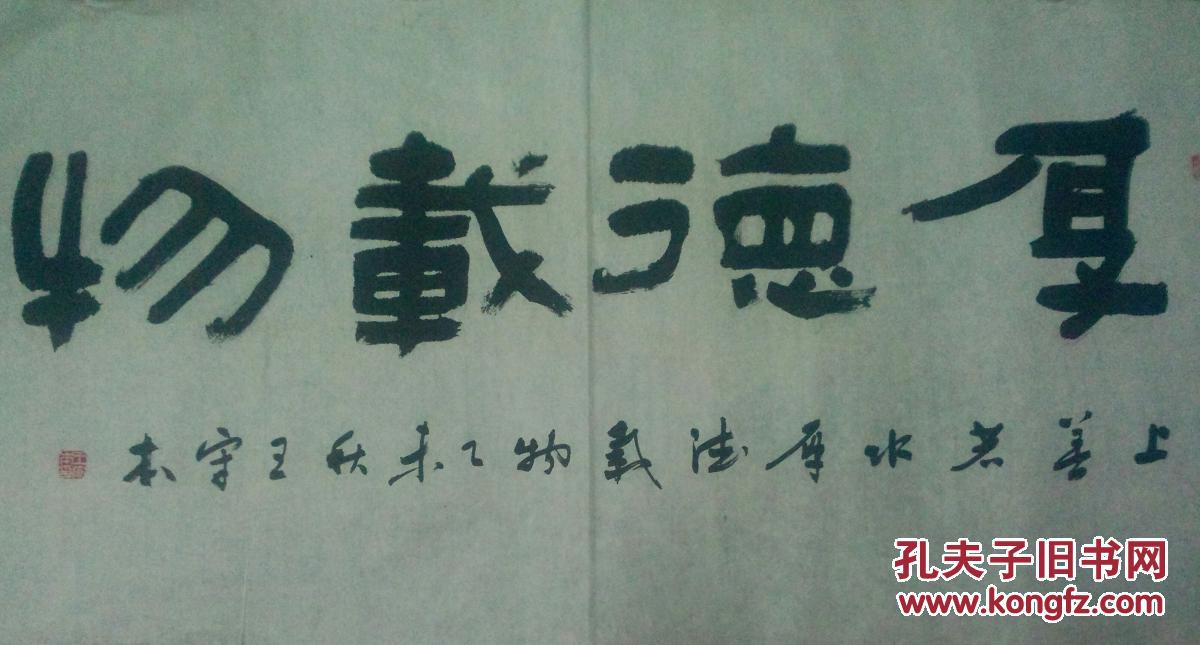 厚德載物
上善若水厚德載物乙未秋王守本
孔夫子旧书网
www.kongfz.com